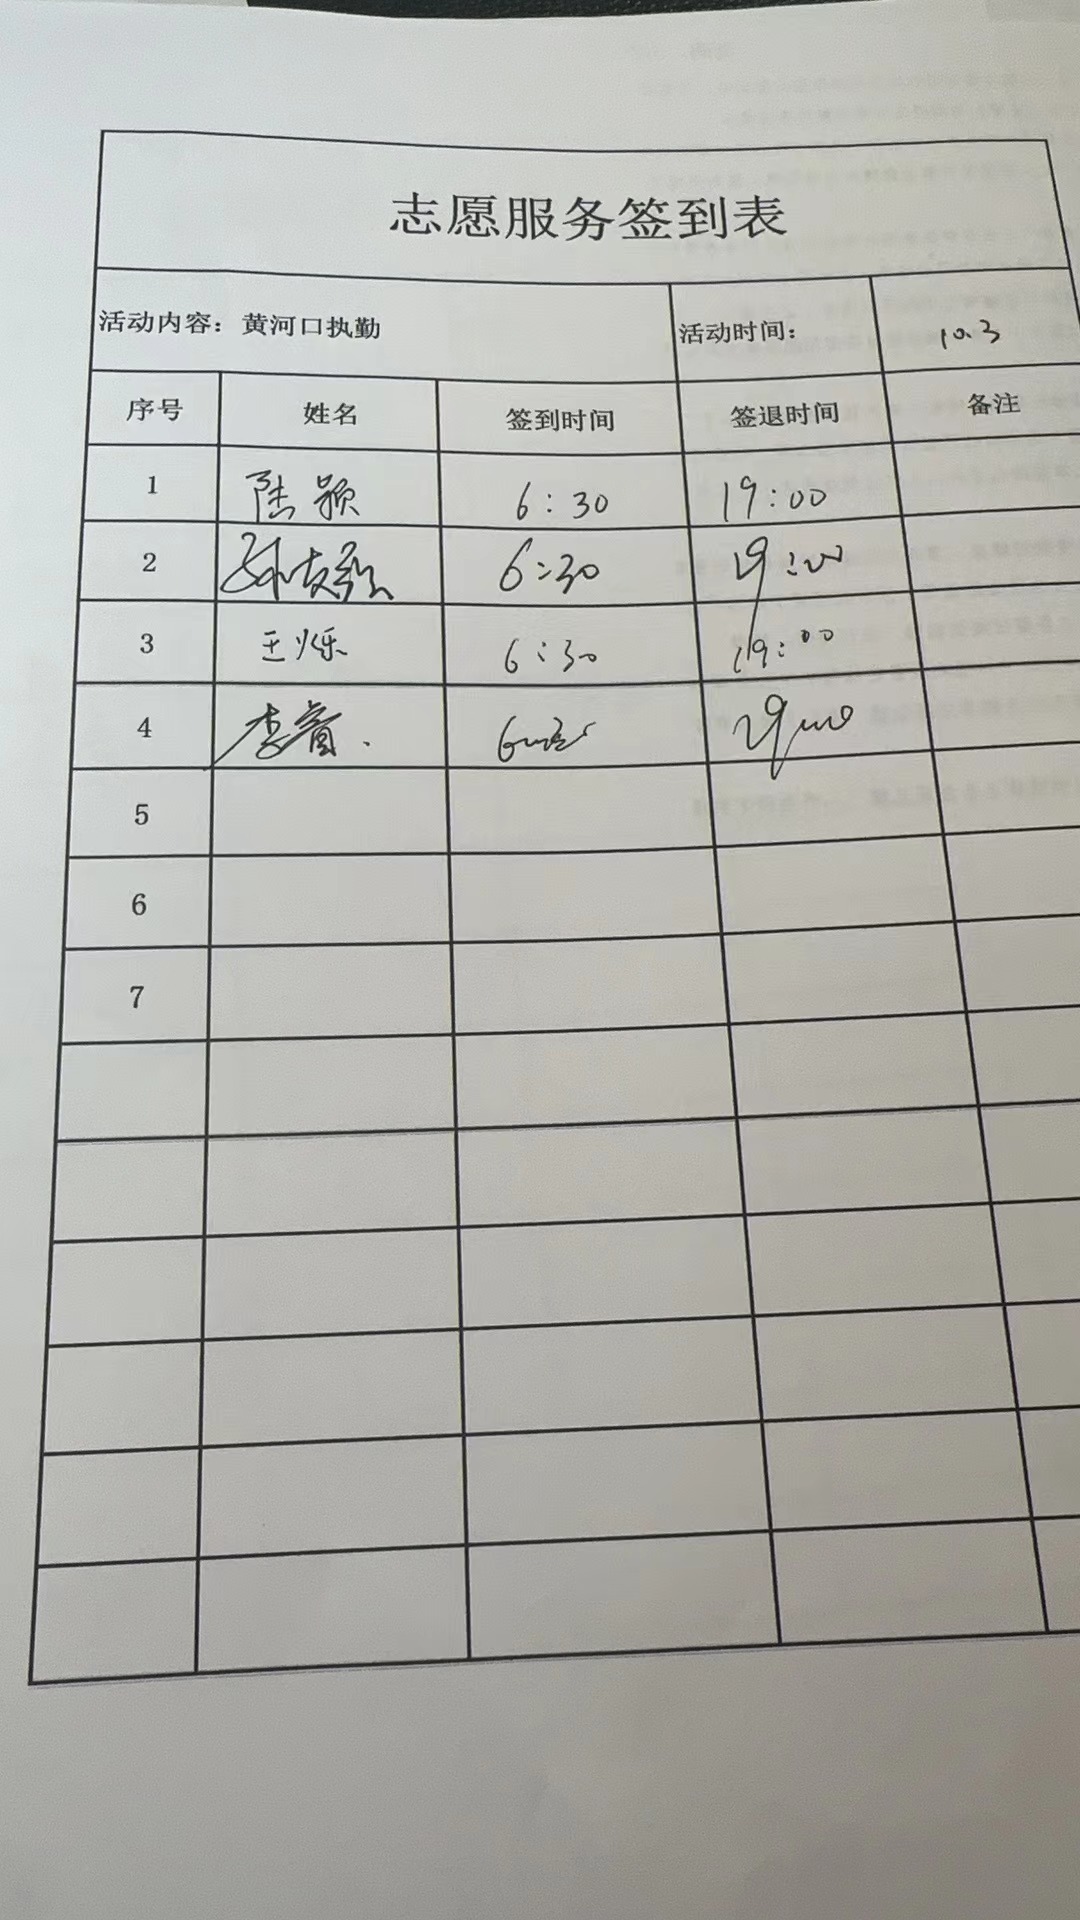 志愿服务签到表
活动内容：黄河口执勤 活动时间： 10.3
序号 姓名 签到时间 签退时间 备注
1 陆颖 6:30 19:00
2 6:30 19:00
3 王烁 6:30 19:00
4 李睿.
5
6
7